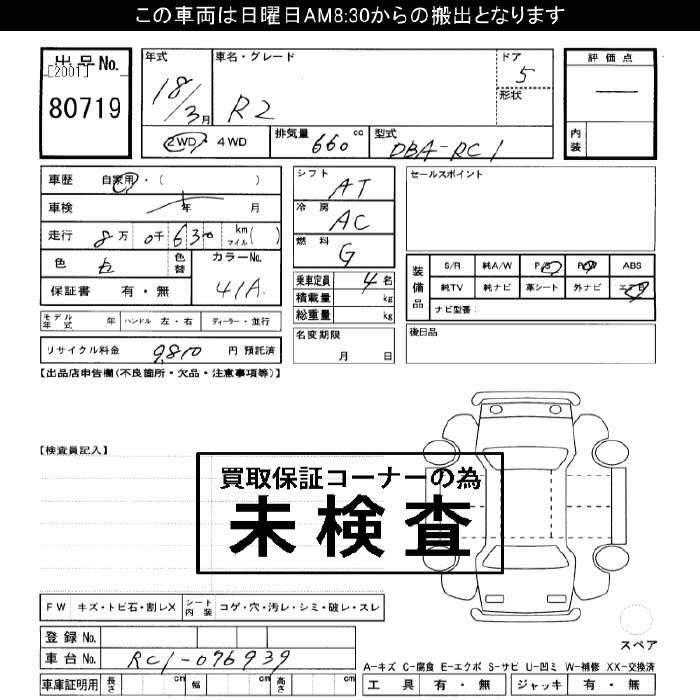 この車両は日曜日AM8:30からの搬出となります
出品No.
[2001]
80719
年式
18/3月
車名・グレード
R2
ドア
5
形状
2WD・4WD
排気量 660 cc
型式 DBA-RC1
評価点
―
内装
車歴 自家用・( )
車検 年 月
走行 8万 0千 630 km マイル( )
色 白
色替
カラーNo.
41A
保証書 有・無
モデル年式 年 ハンドル 左・右 ディーラー・並行
リサイクル料金 9,810 円 預託済
シフト AT
冷房 AC
燃料 G
乗車定員 4 名
積載量 kg
総重量 kg
名変期限
月 日
セールスポイント
装備品
S/R 純A/W P/S P/W ABS
純TV 純ナビ 革シート 外ナビ エアB
ナビ型番:
後日品
【出品店申告欄(不良箇所・欠品・注意事項等)】
【検査員記入】
買取保証コーナーの為
未検査
FW キズ・トビ石・割レX シート内装 コゲ・穴・汚レ・シミ・破レ・スレ
登録No.
車台No. RC1-076939
車庫証明用 長さ cm 幅 cm 高さ cm
スペア
A-キズ C-腐食 E-エクボ S-サビ U-凹ミ W-補修 XX-交換済
工具 有・無 ジャッキ 有・無